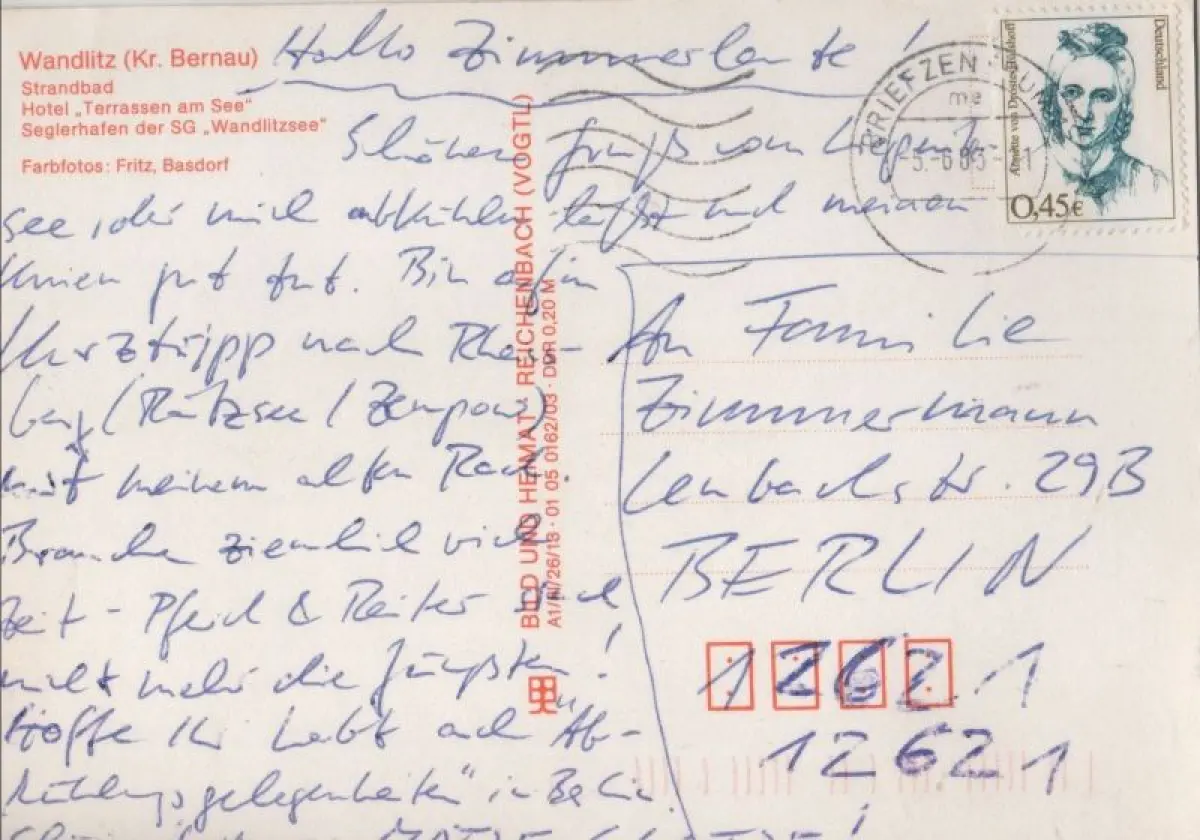 Wandlitz (Kr. Bernau)
Strandbad
Hotel „Terrassen am See"
Seglerhafen der SG „Wandlitzsee"
Farbfotos: Fritz, Basdorf
Hallo Zimmerleute!
Schönen Gruß vom
see, der mich abkühlen läßt und meinen
Knien gut tut. Bin auf'm
Kurztripp nach Rheins-
berg (Rätzsee / Zempow)
mit meinem alten Rad.
Brauche ziemlich viel
Zeit - Pferd & Reiter sind
nicht mehr die Jüngsten!
Hoffe Ihr habt auch „Ab-
kühlungsgelegenheiten" in Berlin.
BILD UND HEIMAT · REICHENBACH (VOGTL)
A1/III/26/13 · 01 05 0162/03 · DDR 0,20 M
BRIEFZENTRUM
Deutschland
Annette von Droste-Hülshoff
0,45€
An Familie
Zimmermann
Lenbachstr. 29B
BERLIN
12621
12621